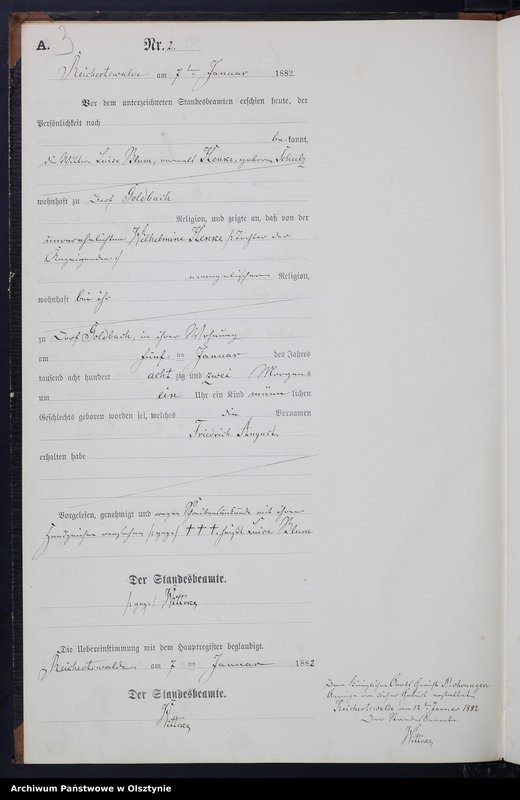 A. 3 Nr. 2.
Reichertswalde am 7ten Januar 1882.
Vor dem unterzeichneten Standesbeamten erschien heute, der
Persönlichkeit nach
be kannt,
die Wittwe Luise Blum, vormals Kenke, geborene Schulz
wohnhaft zu Dorf Goldbach
Religion, und zeigte an, daß von der
unverehelichten Wilhelmine Kenke, /: Tochter der
Anzeigenden :/
evangelischer Religion,
wohnhaft bei ihr
zu Dorf Goldbach, in ihrer Wohnung
am fünften Januar des Jahres
tausend acht hundert acht zig und zwei Morgens
um ein Uhr ein Kind männ lichen
Geschlechts geboren worden sei, welches die Vornamen
Friedrich August
erhalten habe
Vorgelesen, genehmigt und wegen Schreibensunkunde mit ihrem
Handzeichen versehen /: gez :/ ††† heißt Luise Blum
Der Standesbeamte.
/: gez :/
Die Uebereinstimmung mit dem Hauptregister beglaubigt.
Reichertswalde am 7 ten Januar 1882
Der Standesbeamte.
Dem Königlichen Amts Gericht Mohrungen
Anzeige von dieser Geburt erstattet.
Reichertswalde am 12ten Januar 1882
Der Standesbeamte
Archiwum Państwowe w Olsztynie